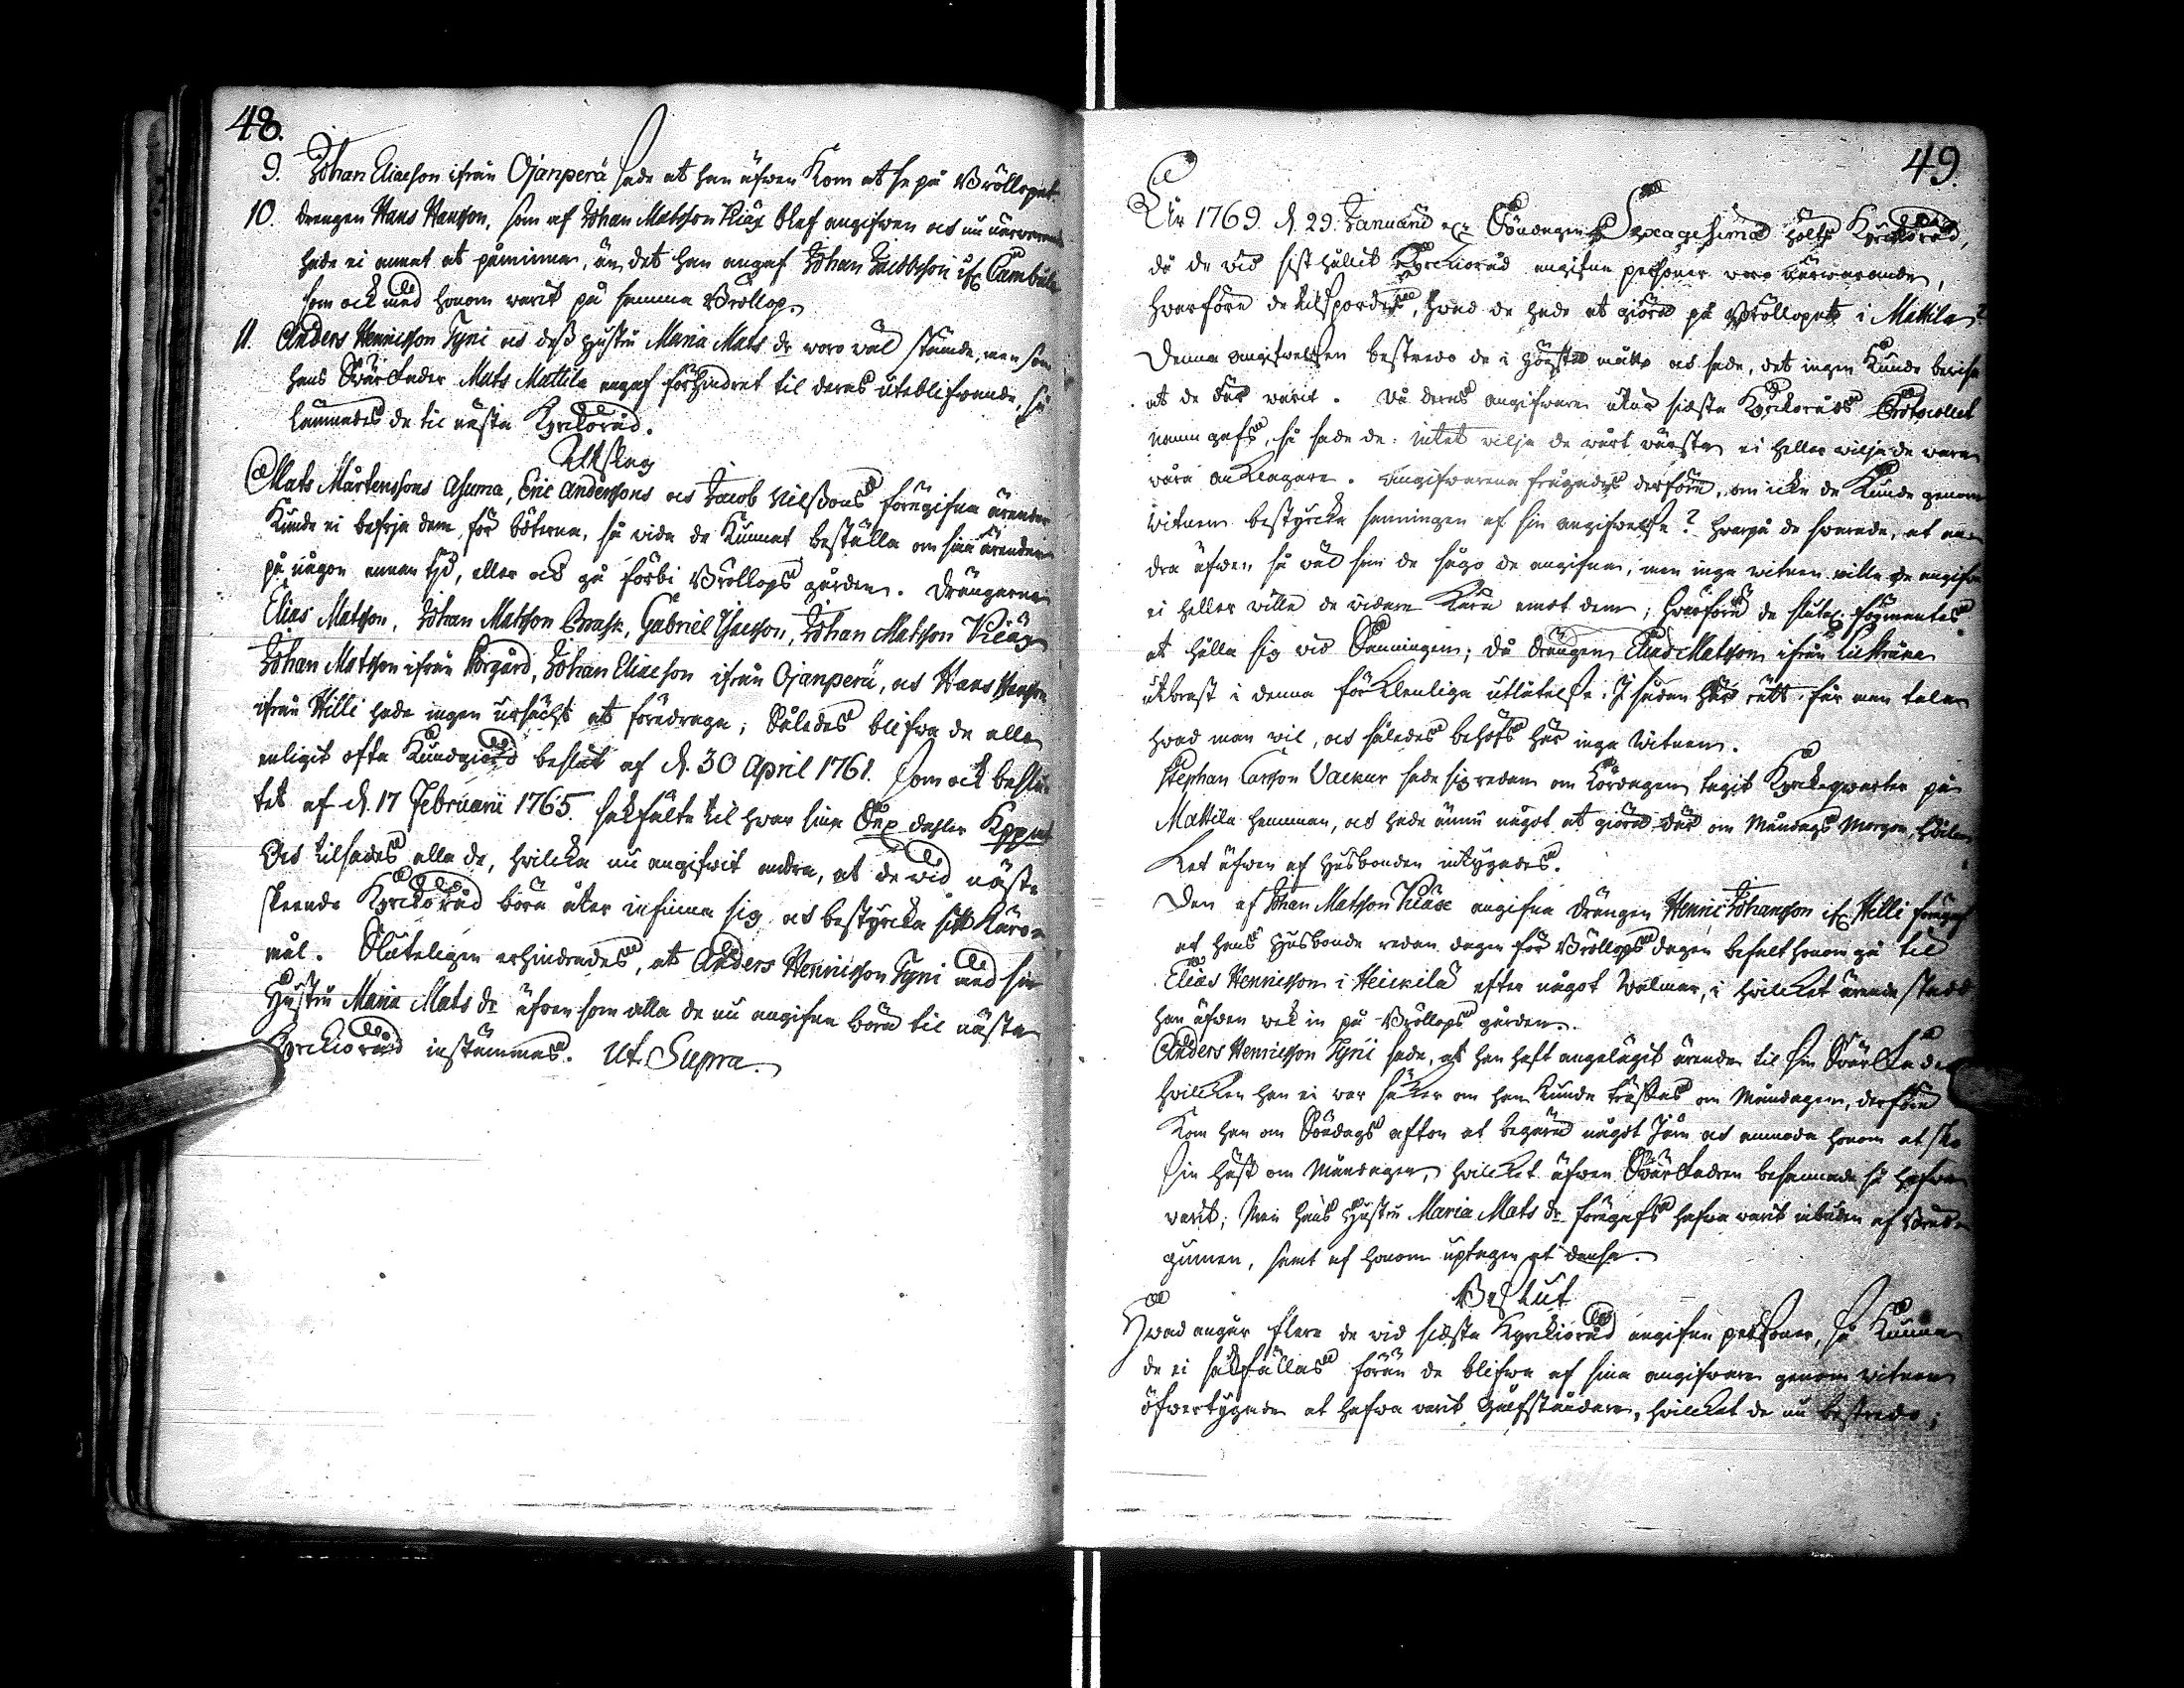 48.
9. Johan Eliaeson ifrån Ojanperä sade at han äfwen kom at se på Bröllopet.
10. drengen Hans Hansson, som af Johan Matsson Kiäx blef angifwen och nu närwarande
hade ei annat at påminna, än det han angaf Johan Jacobsson if: Cambula
som ock med honom warit på samma Bröllop.
11. Anders Henricsson Tyni och dess hustru Maria Mats dr woro wäl stämde, men som
hans Swärfader Mats Mattila angaf förhindret til deras uteblifwande, så
lemnades de til nästa Kyrckoråd.
Utslag
Mats Mårtenssons Asuma, Eric Anderssons och Jacob Nilssons föregifna ärender
kunde ei befrja dem för böterna, så wida de kunnat beställa om sina ärender
på någon annan tjd, eller ock gå förbi Bröllops gården. Drängarna
Elias Matsson, Johan Matsson Brask, Gabriel Isacsson, Johan Matsson Kiäx
Johan Matsson ifrån Porgård, Johan Eliaeson ifrån Ojanperä, och Hans Hansson
ifrån Hilli hade ingen ursächt at föredraga; Således blifwa de alla
enligit ofta kundgiord beslut af d. 30 April 1761. som ock beslu-
tet af d. 17 Februarii 1765. sakfälte til hwar sina Sex daler Kppmt
Och tilsades alla de, hwilcka nu angifwit andra, at de wid nästa
skeende Kyrckoråd böra åter infinna sig och bestyrcka sitt käro-
mål. Sluteligen erhindrades, at Anders Henricsson Tyni med sin
Hustru Maria Mats dr äfwen som alla de nu angifna böra til nästa
Kyrckioråd instämmas. Ut Supra.
49.
År 1769. d. 29. Januarii Söndagen Sexagesima hölts Kyrckoråd,
då de wid sist hållit Kyrckioråd angifna personer woro närwarande,
hwarföre de tilspordes, hwad de hade at giöra på Bröllopet i Mattila?
Denna angifwelsen bestredo de i högsta måtto och sade, det ingen kunde bewisa
at de där warit. Då deras angifware utur sidsta Kyrckoråds Protocollet
namngafs, så sade de: intet wilja de wårt wärsta ei heller wilja de wara
wåra anklagare. Angifwarena frågades derföre, om icke de kunde genom
witnen bestyrcka sanningen af sin angifwelse? hwarpå de swarade, at an-
dra äfwen så wäl som de sågo de angifna, men inga witnen wille de angifwa
ei heller wille de widare kära emot dem; hwarföre de slutel: förmantes
at hålla sig wid Sanningen; då drängen Elias Matsson ifrån
utbrast i denna förklenliga utlåtelse: I sådan här rätt får man tala
hwad man wil, och således behöfs här inga witnen.
Stephan Carsson Vackur sade sig redan om Lördagen tagit Kyrckoqwarter på
Mattila hemman, och hade ännu något at giöra där om Måndags Morgon, hwil-
ket äfwen af Husbonden intygades.
Den af Johan Matsson Kiäx angifna drängen Henric Johansson if: Hilli föregaf
at hans Husbonde redan dagen för Bröllopsdagen befalt honom gå til
Elias Henricsson i Heickilä efter något Walmar, i hwilcket ärende stadd
han äfwen wek in på Bröllops gården.
Anders Henricsson Tyni sade, at han haft angelägit ärende til sin Swärfader
hwilcken han ei war säker om han kunde träffas om Måndagen, derföre
kom han om Söndags afton at begära något Järn och anmoda honom at sko
sin häst om Måndagen, hwilcket äfwen Swärfadren besannade så hafwa
warit; Men hans Hustru Maria Mats dr föregafs hafwa warit inbuden af Brud-
gumen, samt af honom uptagen at dansa.
Beslut
Hwad angår flere de wid sidsta Kyrckioråd angifna personer, så kunna
de ei sakfällas förän de blifwa af sina angifware genom witnen
öfwertygade at hafwa warit Gålfståndare, hwilcket de nu bestredo;